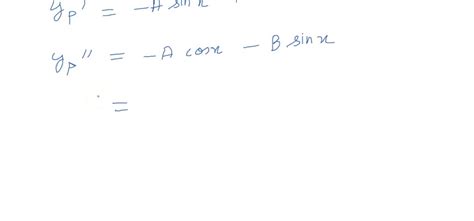 yp' = -A sin x
yp'' = -A cos x - B sin x
=